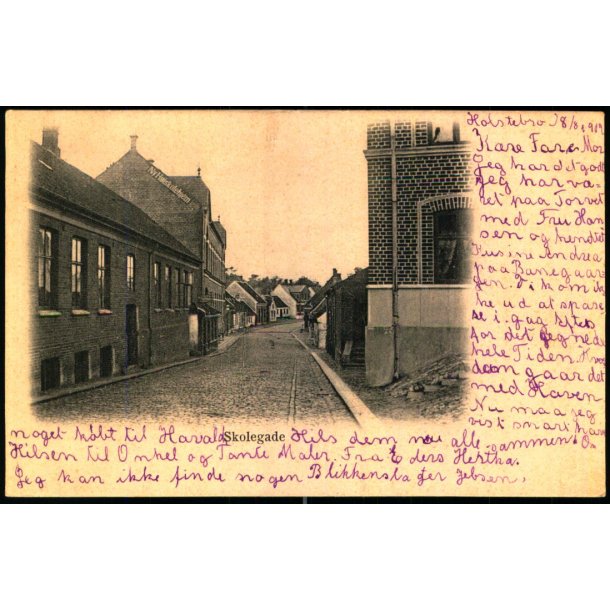 Holstebro 28/8 1917
Kære Far & Mor
Jeg har det godt
Jeg har væ-
ret paa Torvet
med Fru Han
sen og hendtet
Kusine Andrea
paa Banegaar
den. Vi kom ik
ke ud at spase
re i gaa
for det
hele Tiden.
dan gaar det
med Haven
Nu maa jeg
vist snart have
noget købt til Harvald Hils dem nu alle sammen! O-
Hilsen til Onkel og Tante Maler. Fra Eders Hertha.
Jeg kan ikke finde nogen Blikkenslager Jebsen.
Skolegade